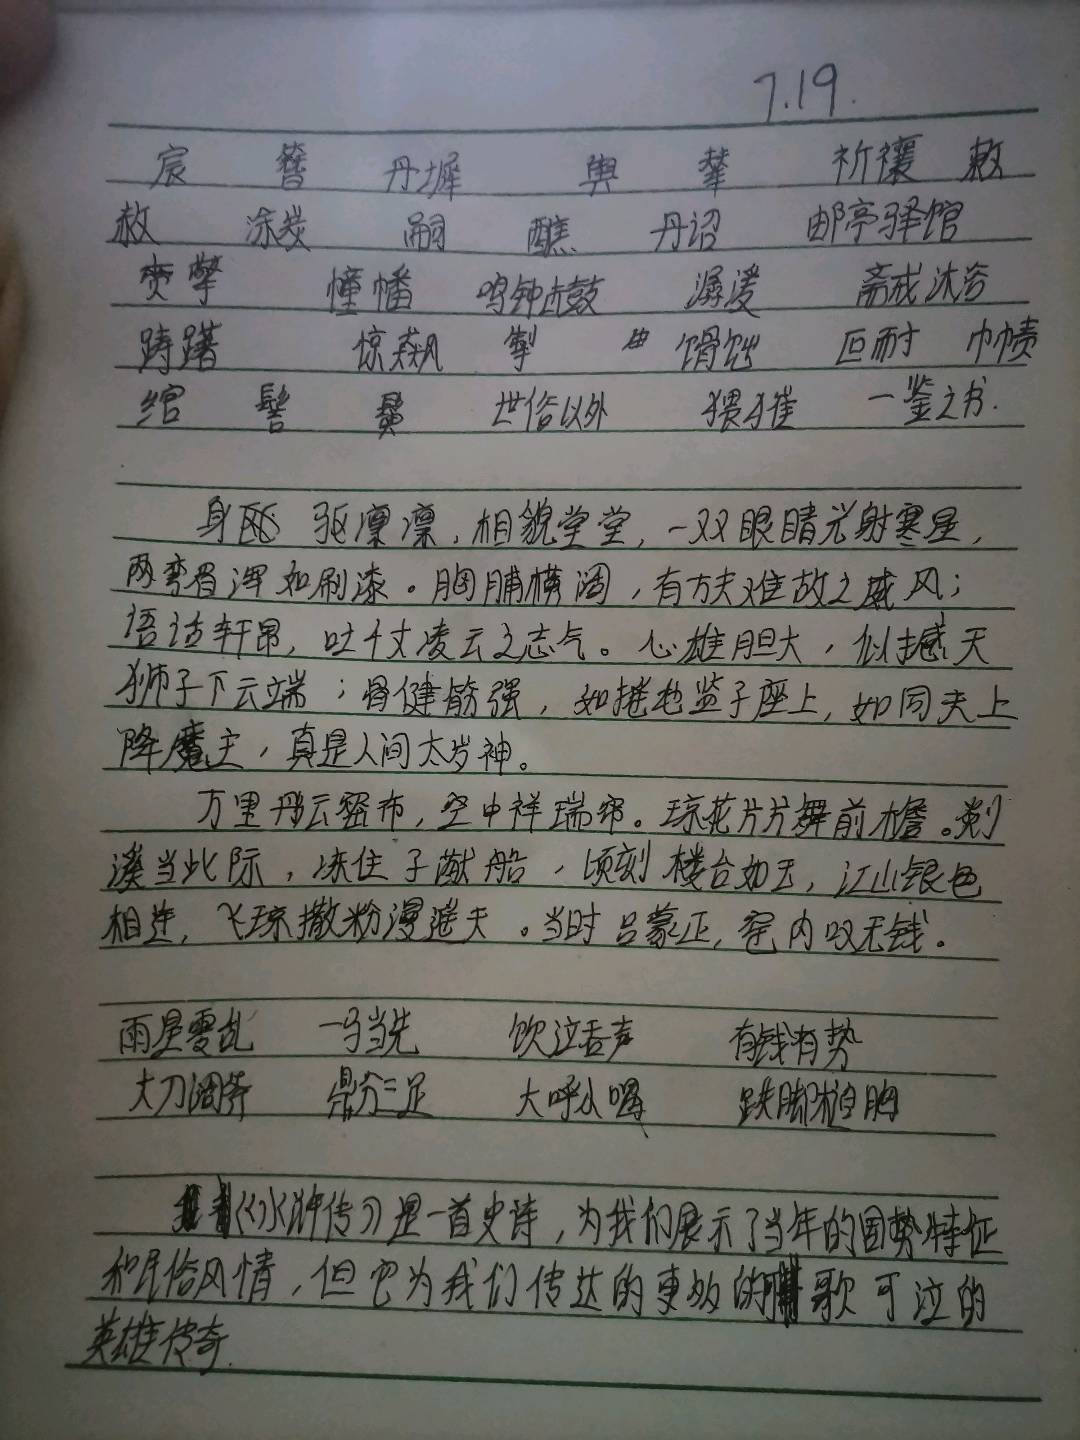 7.19.
宸 簪 丹墀 舆 辇 祈禳 敕
赦 涂炭 嗣 醮 丹诏 邮亭驿馆
擎 幢幡 鸣钟击鼓 潺湲 斋戒沐浴
踌躇 惊飙 掣 曲 馉饳 叵耐 巾帻
绾 髻 鬓 世俗以外 猥獕 一鉴之书.
身 驱凛凛，相貌堂堂，一双眼睛光射寒星，
两弯眉浑如刷漆。胸脯横阔，有万夫难敌之威风；
语话轩昂，吐千丈凌云之志气。心雄胆大，似撼天
狮子下云端；骨健筋强，如摇地 子座上，如同天上
降魔主，真是人间太岁神。
万里彤云密布，空中祥瑞帘。琼花片片舞前檐。剡
溪当此际，冻住子猷船，顷刻楼台如玉，江山银色
相连，飞琼撒粉漫遥天。当时吕蒙正，窑内叹无钱。
雨星零乱 一马当先 饮泣吞声 有钱有势
大刀阔斧 鼎分三足 大呼小喝 跌脚槌胸
《水浒传》是一首史诗，为我们展示了当年的国势特征
和民俗风情，但它为我们传达的更多的 歌可泣的
英雄传奇.